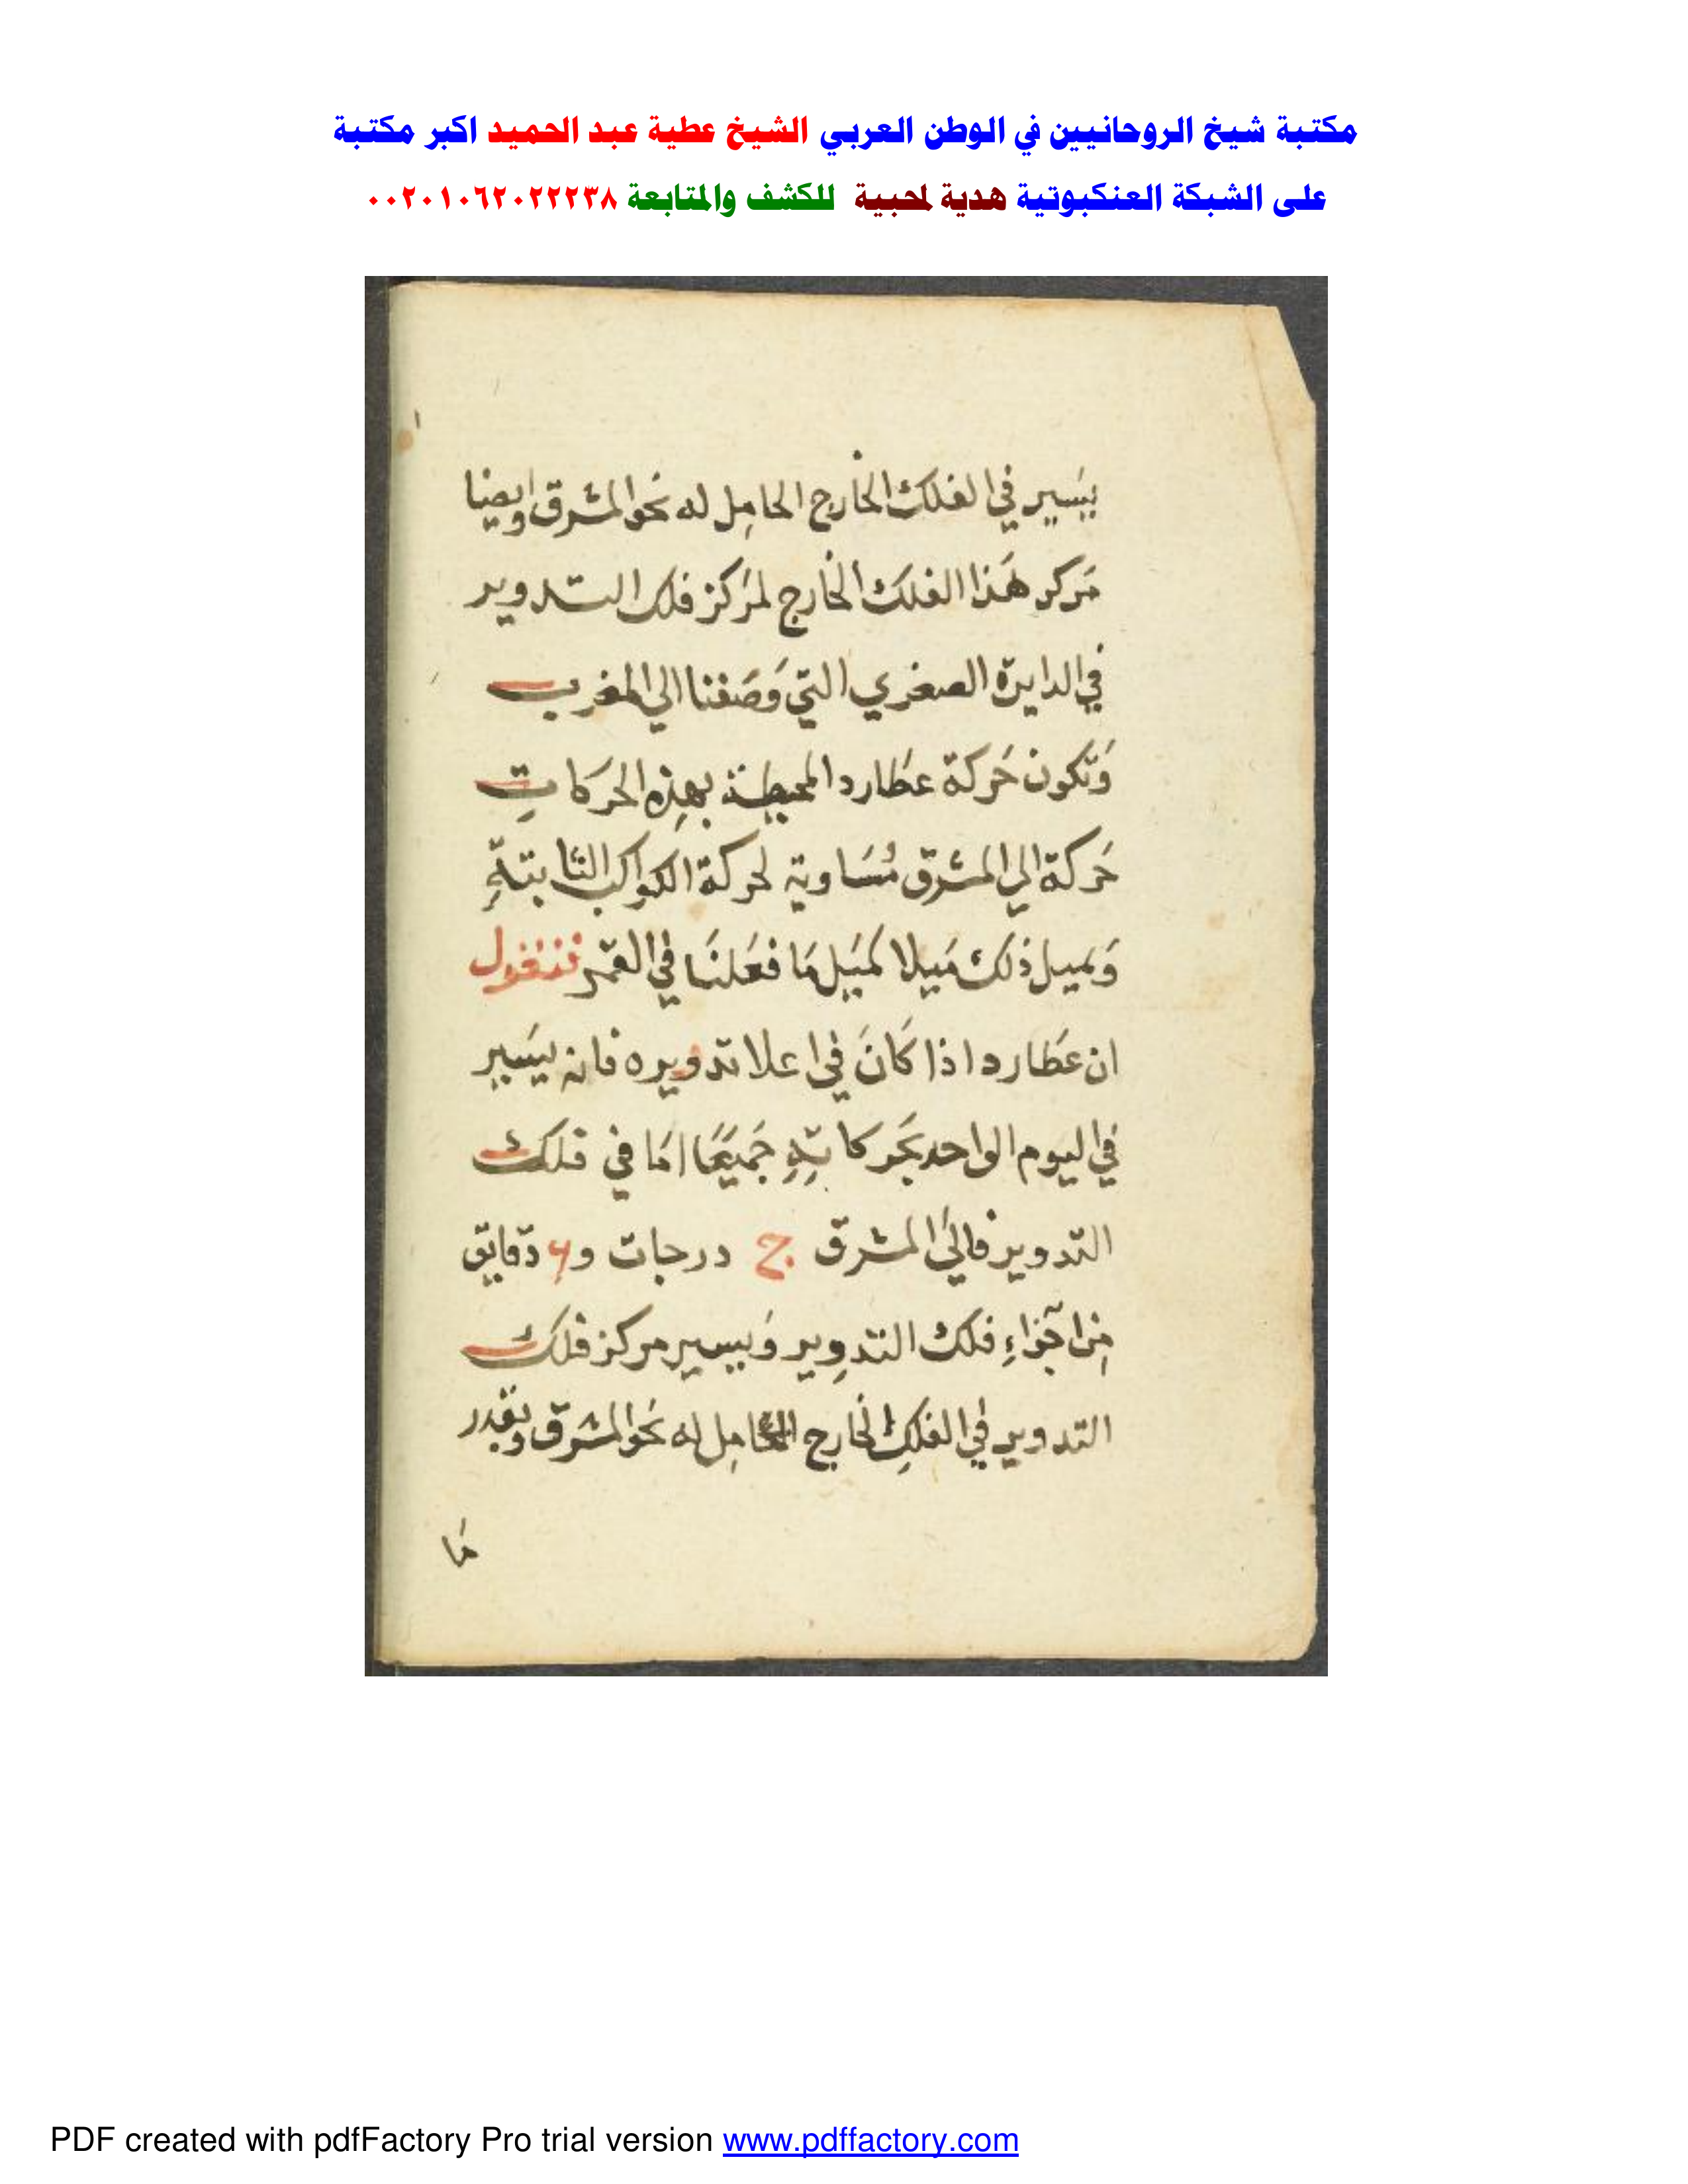 مكتبة شيخ الروحانيين في الوطن العربي الشيخ عطية عبد الحميد اكبر مكتبة
على الشبكة العنكبوتية هدية لمحبية للكشف والمتابعة ٠٠٢٠١٠٦٢٠٢٢٢٣٨
يسير في الفلك الخارج الحامل له نحو المشرق وايضا
مركز هذا الفلك الخارج لمركز فلك التدوير
في الدايرة الصغري التي وصفنا الي المغرب
وتكون حركة عطارد المحيطة بهذه الحركات
حركة الي المشرق مساوية لحركة الكواكب الثابتة
ذلك ميلا ما فعلنا في القمر فنقول
ان عطارد اذا كان في اعلا تدويره فانه يسير
في اليوم الواحد بحركاته جميعا اما في فلك
التدوير فالي المشرق ج درجات و٦ دقايق
من اجزاء فلك التدوير ويسير مركز فلك
التدوير في الفلك الخارج الحامل له نحو المشرق وبقدر
ما
PDF created with pdfFactory Pro trial version www.pdffactory.com